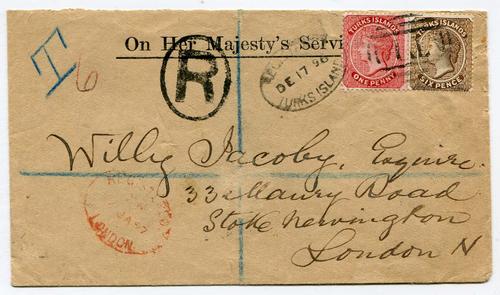 On Her Majesty's Servi
T
6
R
DE 17 96
TURKS ISLAND
TURKS ISLANDS
ONE PENNY
TURKS ISLANDS
SIX PENCE
Willy Jacoby, Esquire.
Road
Stoke Newington
London N
LONDON